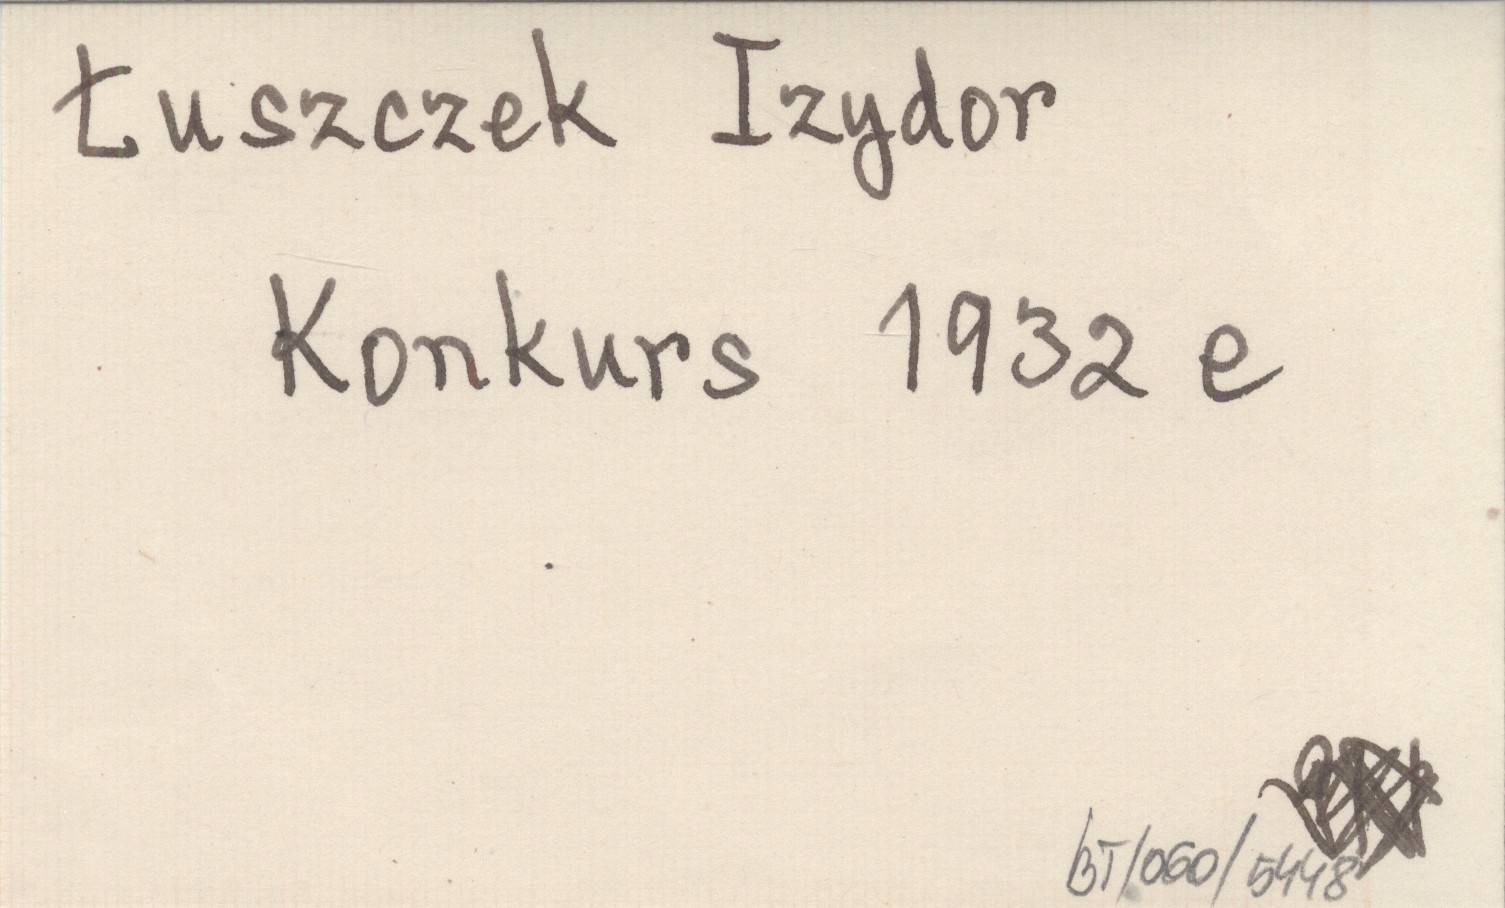 Łuszczek Izydor
Konkurs 1932 e
BT/060/5448